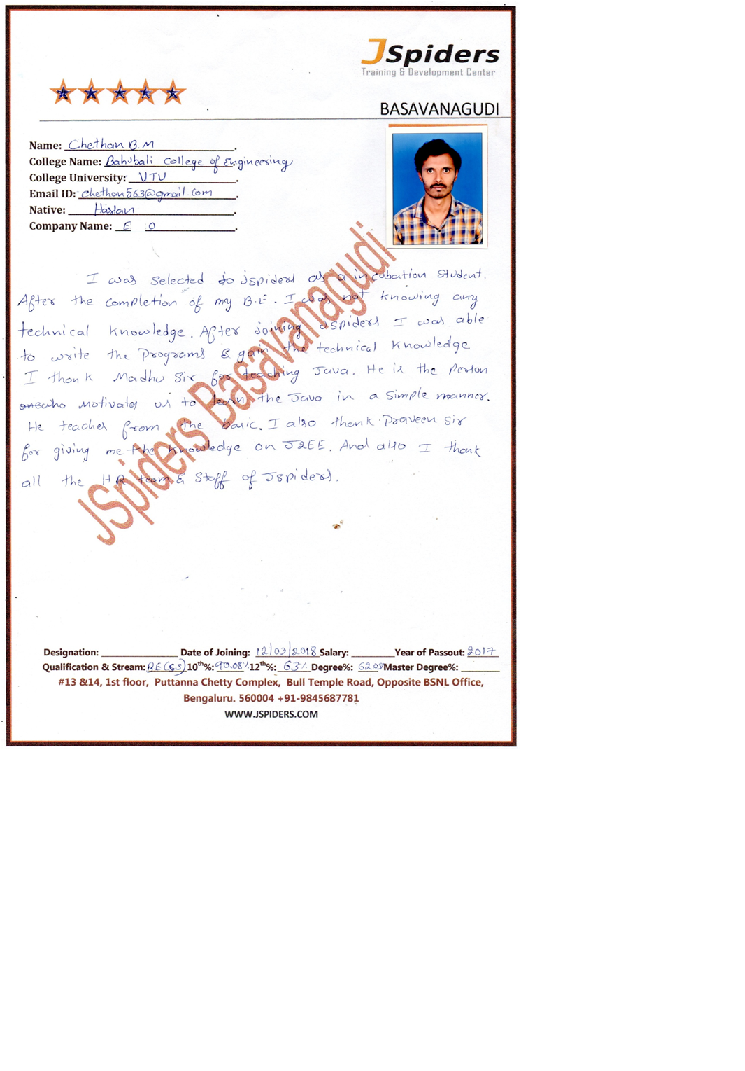 JSpiders
Training & Development Center
BASAVANAGUDI
Name: Chethan B M
College Name: Bahubali College of Engineering
College University: VTU
Email ID: chethan563@gmail.com
Native: Hassan
Company Name: E O
I was selected to Jspiders as a incubation student.
After the completion of my B.E. I was not knowing any
technical knowledge. After joining Jspiders I was able
to write the programs & gain the technical knowledge
I thank Madhu Sir for teaching Java. He is the person
who motivates us to learn the Java in a simple manner.
He teaches from the basic. I also thank Praveen Sir
for giving me the knowledge on J2EE. And also I thank
all the HR team & Staff of Jspiders.
JSpiders Basavanagudi
Designation: Date of Joining: 12/03/2018 Salary: Year of Passout: 2017
Qualification & Stream: BE(CS) 10th%: 90.08% 12th%: 63% Degree%: Master Degree%:
#13 &14, 1st floor, Puttanna Chetty Complex, Bull Temple Road, Opposite BSNL Office,
Bengaluru. 560004 +91-9845687781
WWW.JSPIDERS.COM